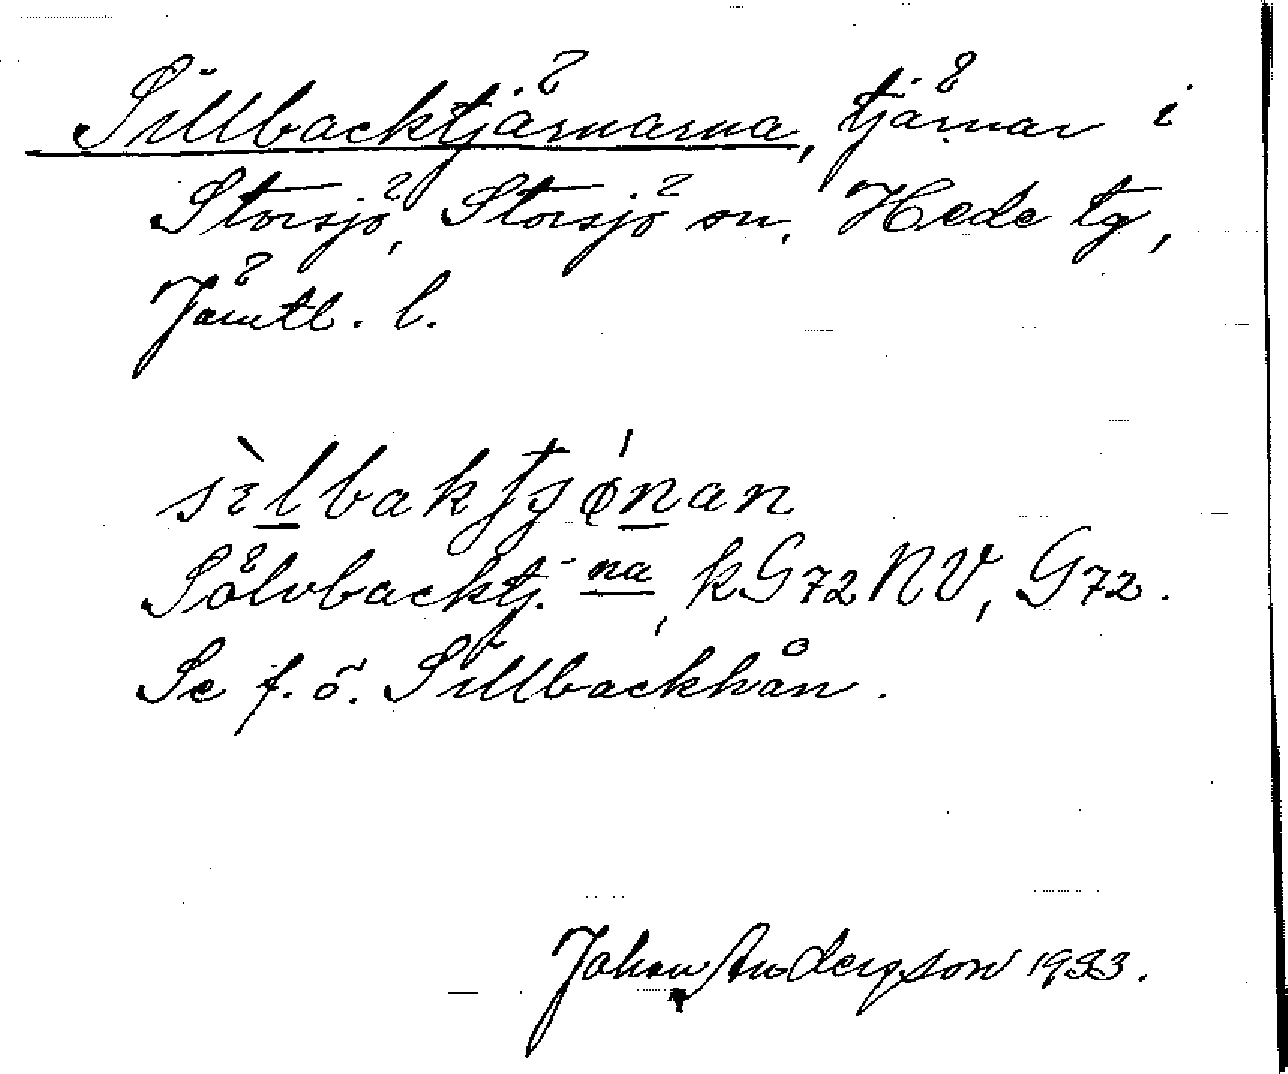 Sillbacktjärnarna, tjärnar i
Storsjö, Storsjö sn, Hede tg,
Jämtl. l.
sìlbaktjǿnan
Sölvbacktj.-na, kG72NV, G72.
Se f. ö. Sillbackhån.
Johan Andersson 1933.